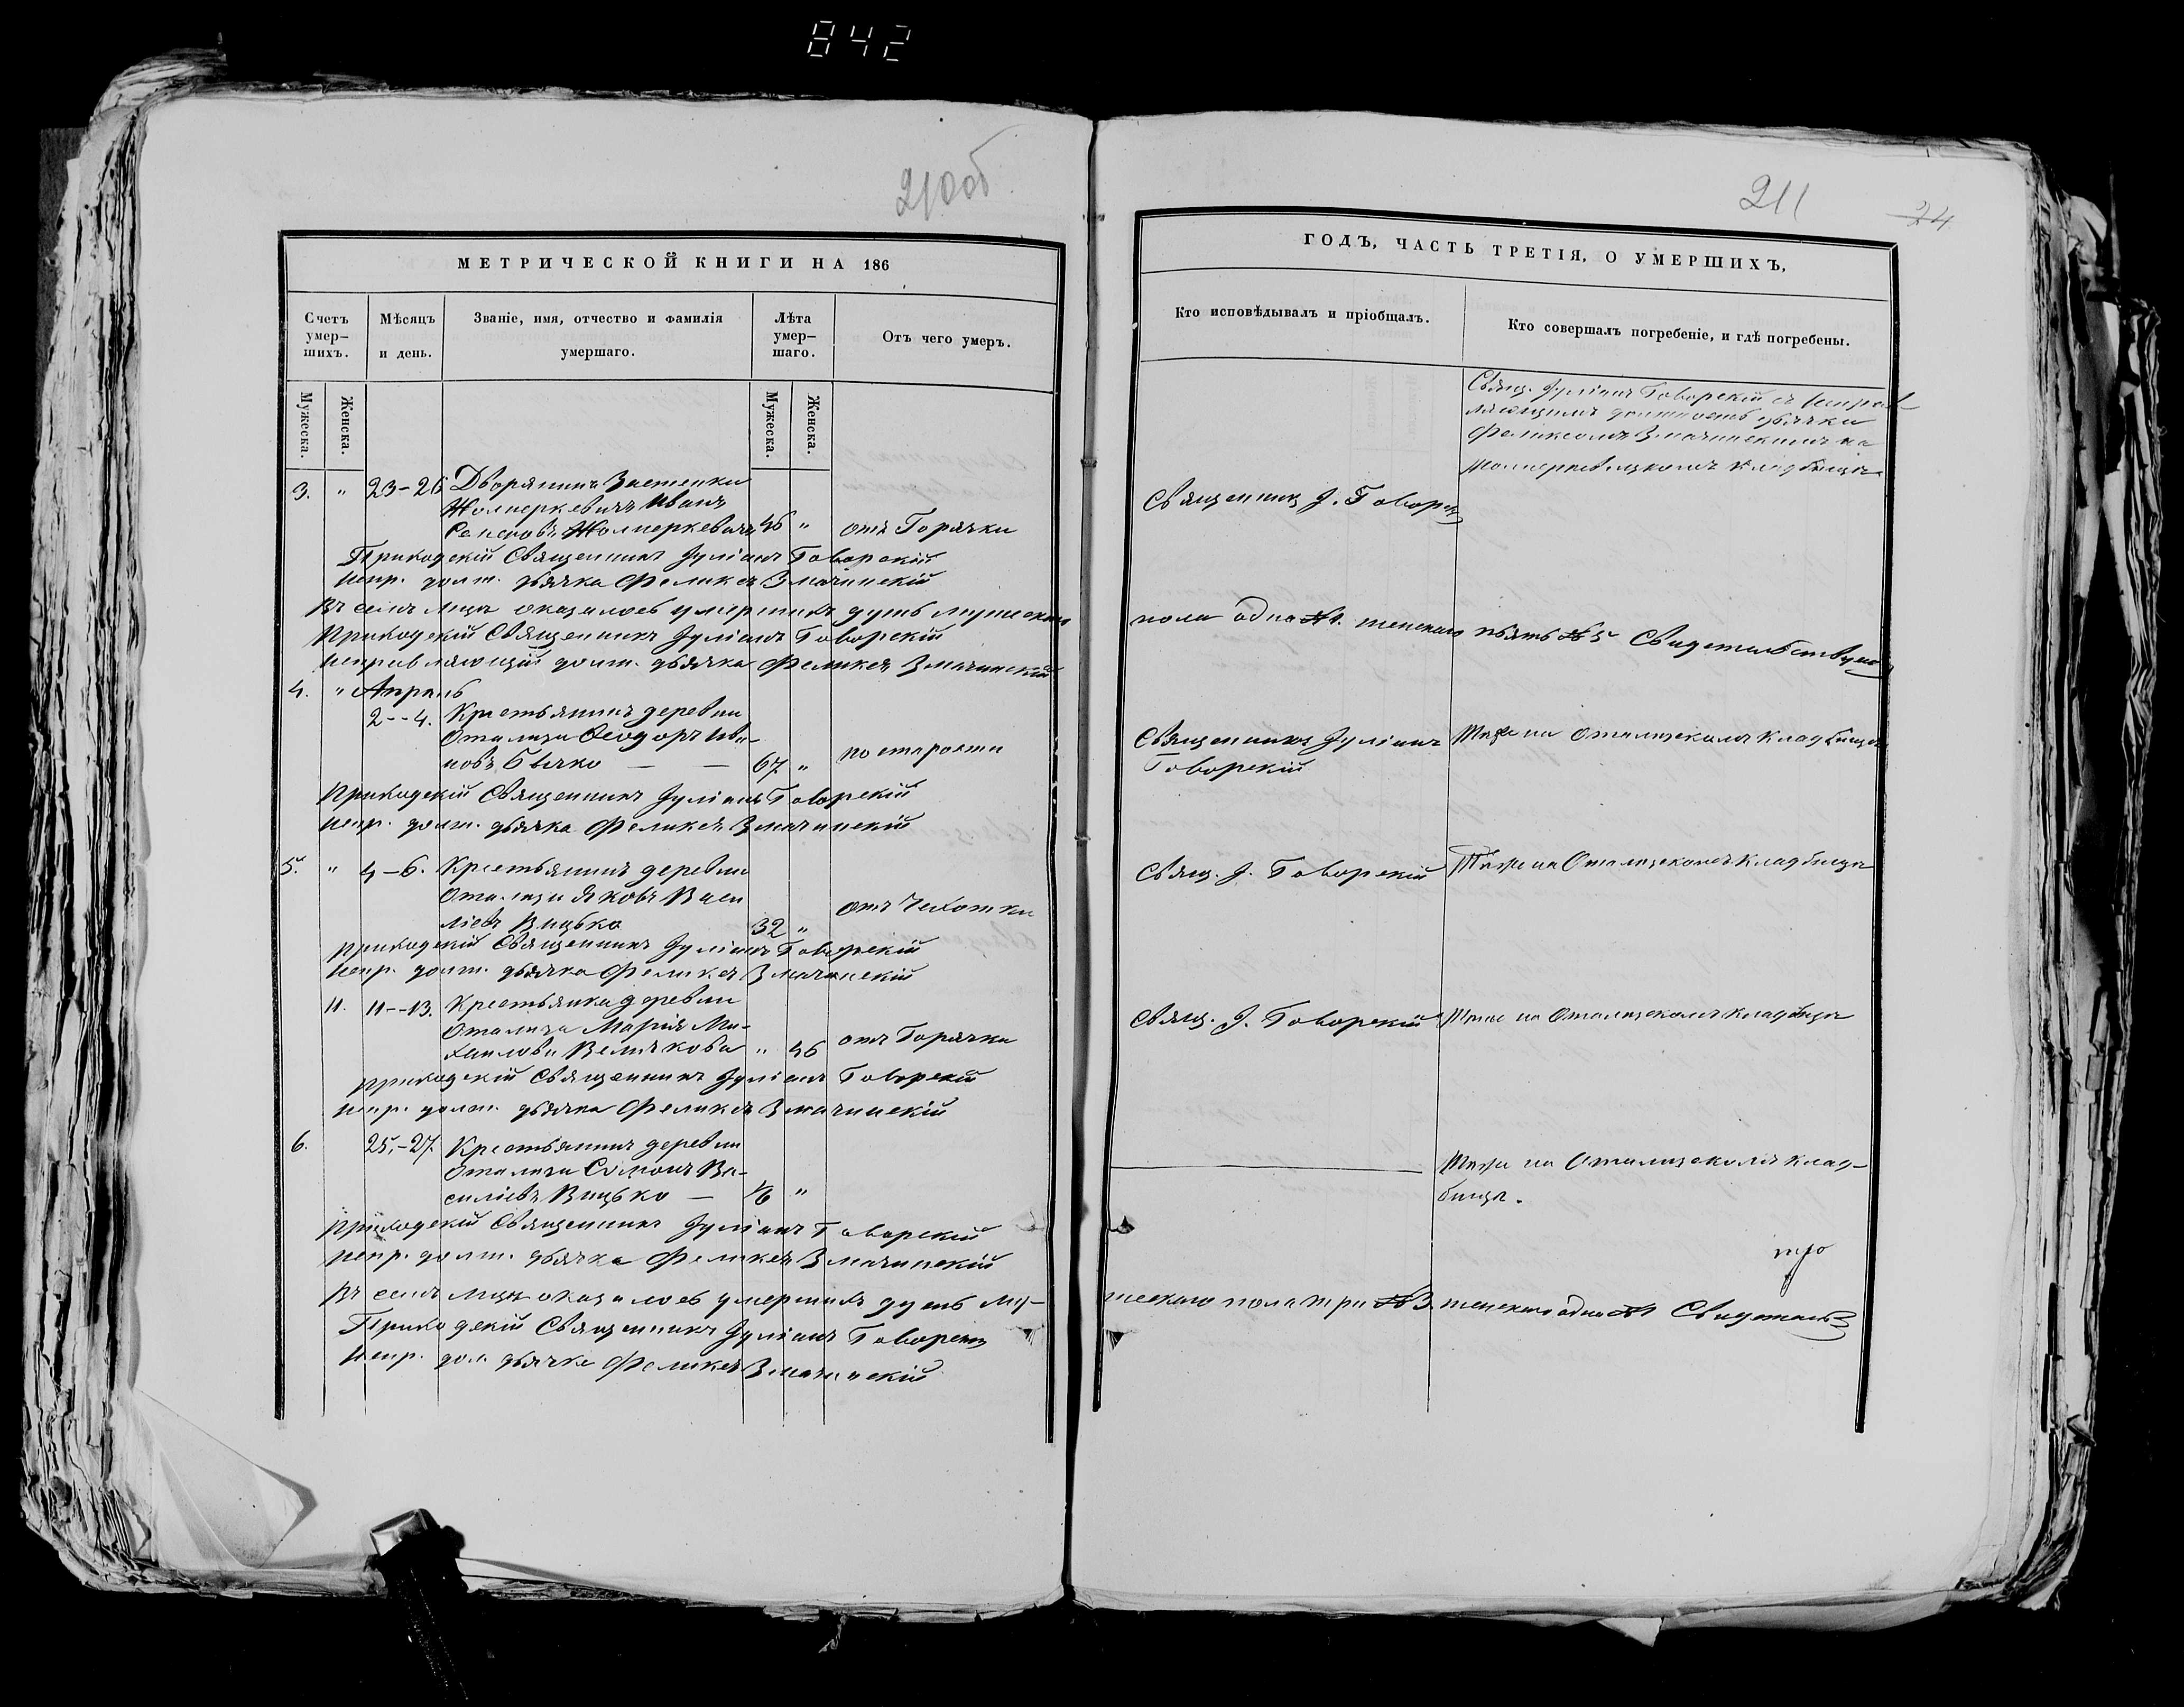 842
210об
МЕТРИЧЕСКОЙ КНИГИ НА 186
Счетъ умер-шихъ.
Мѣсяцъ и день.
Званіе, имя, отчество и фамилія умершаго.
Лѣта умер-шаго.
Отъ чего умеръ.
Мужеска.
Женска.
Мужеска.
Женска.
3. " 23-26 Дворянинъ Застенки
Жолнеркевичъ Иванъ
Жолнеркевичъ 46 " отъ Горячки
Приходскій Священникъ Іуліанъ Говорскій
испр. долж. дьячка Феликсъ Змачинскій
Въ семъ мцѣ оказалось умершихъ душъ мужескаго
Приходскій Священникъ Іуліанъ Говорскій
исправляющій долж. дьячка Феликсъ Змачинскій
4. " Апрель
2--4. Крестьянинъ деревни
Отализи Ѳеодоръ Ива-
новъ Бычко — — 67 " по старости
Приходскій Священникъ Іуліанъ Говорскій
испр. долж. дьячка Феликсъ Змачинскій
5. " 4-6. Крестьянинъ деревни
Яковъ Васи
ліевъ Вицько 32 " отъ Чехотки
приходскій Священникъ Іуліанъ Говорскій
испр. долж. дьячка Феликсъ Змачинскій
11. 11--13. Крестьянка деревни
Марія Ми-
хаилова Величкова " 46 отъ Горячки
приходскій Священникъ Іуліанъ Говорскій
испр. долж. дьячка Феликсъ Змачинскій
6. 25-27. Крестьянинъ деревни
Симонъ Ва-
силіевъ Вицько — 1/6 "
приходскій Священникъ Іуліанъ Говорскій
испр. долж. дьячка Феликсъ Змачинскій
Въ семъ мцѣ оказалось умершихъ душъ му-
Приходскій Священникъ Іуліанъ Говорскій
Испр. дол. дьячка Феликсъ Змачинскій
211
24
ГОДЪ, ЧАСТЬ ТРЕТІЯ, О УМЕРШИХЪ,
Кто исповѣдывалъ и пріобщалъ.
Кто совершалъ погребеніе, и гдѣ погребены.
Свящ. Іуліанъ Говорскій съ исправ-
ляющимъ должность дьячка
Феликсомъ Змачинскимъ на
кладбищѣ
Священникъ І. Говорск
пола одна №1. женскаго пьять №5 Свидетельствую
Священникъ Іуліанъ
Говорскій
Тоже на кладбищѣ
Свящ. І. Говорскій
Тоже на кладбищѣ
Свящ. І. Говорскій
Тоже на кладбищѣ
Тоже на клад-
бищѣ.
жескаго пола три №3. женскаго одна №1 Свидетель